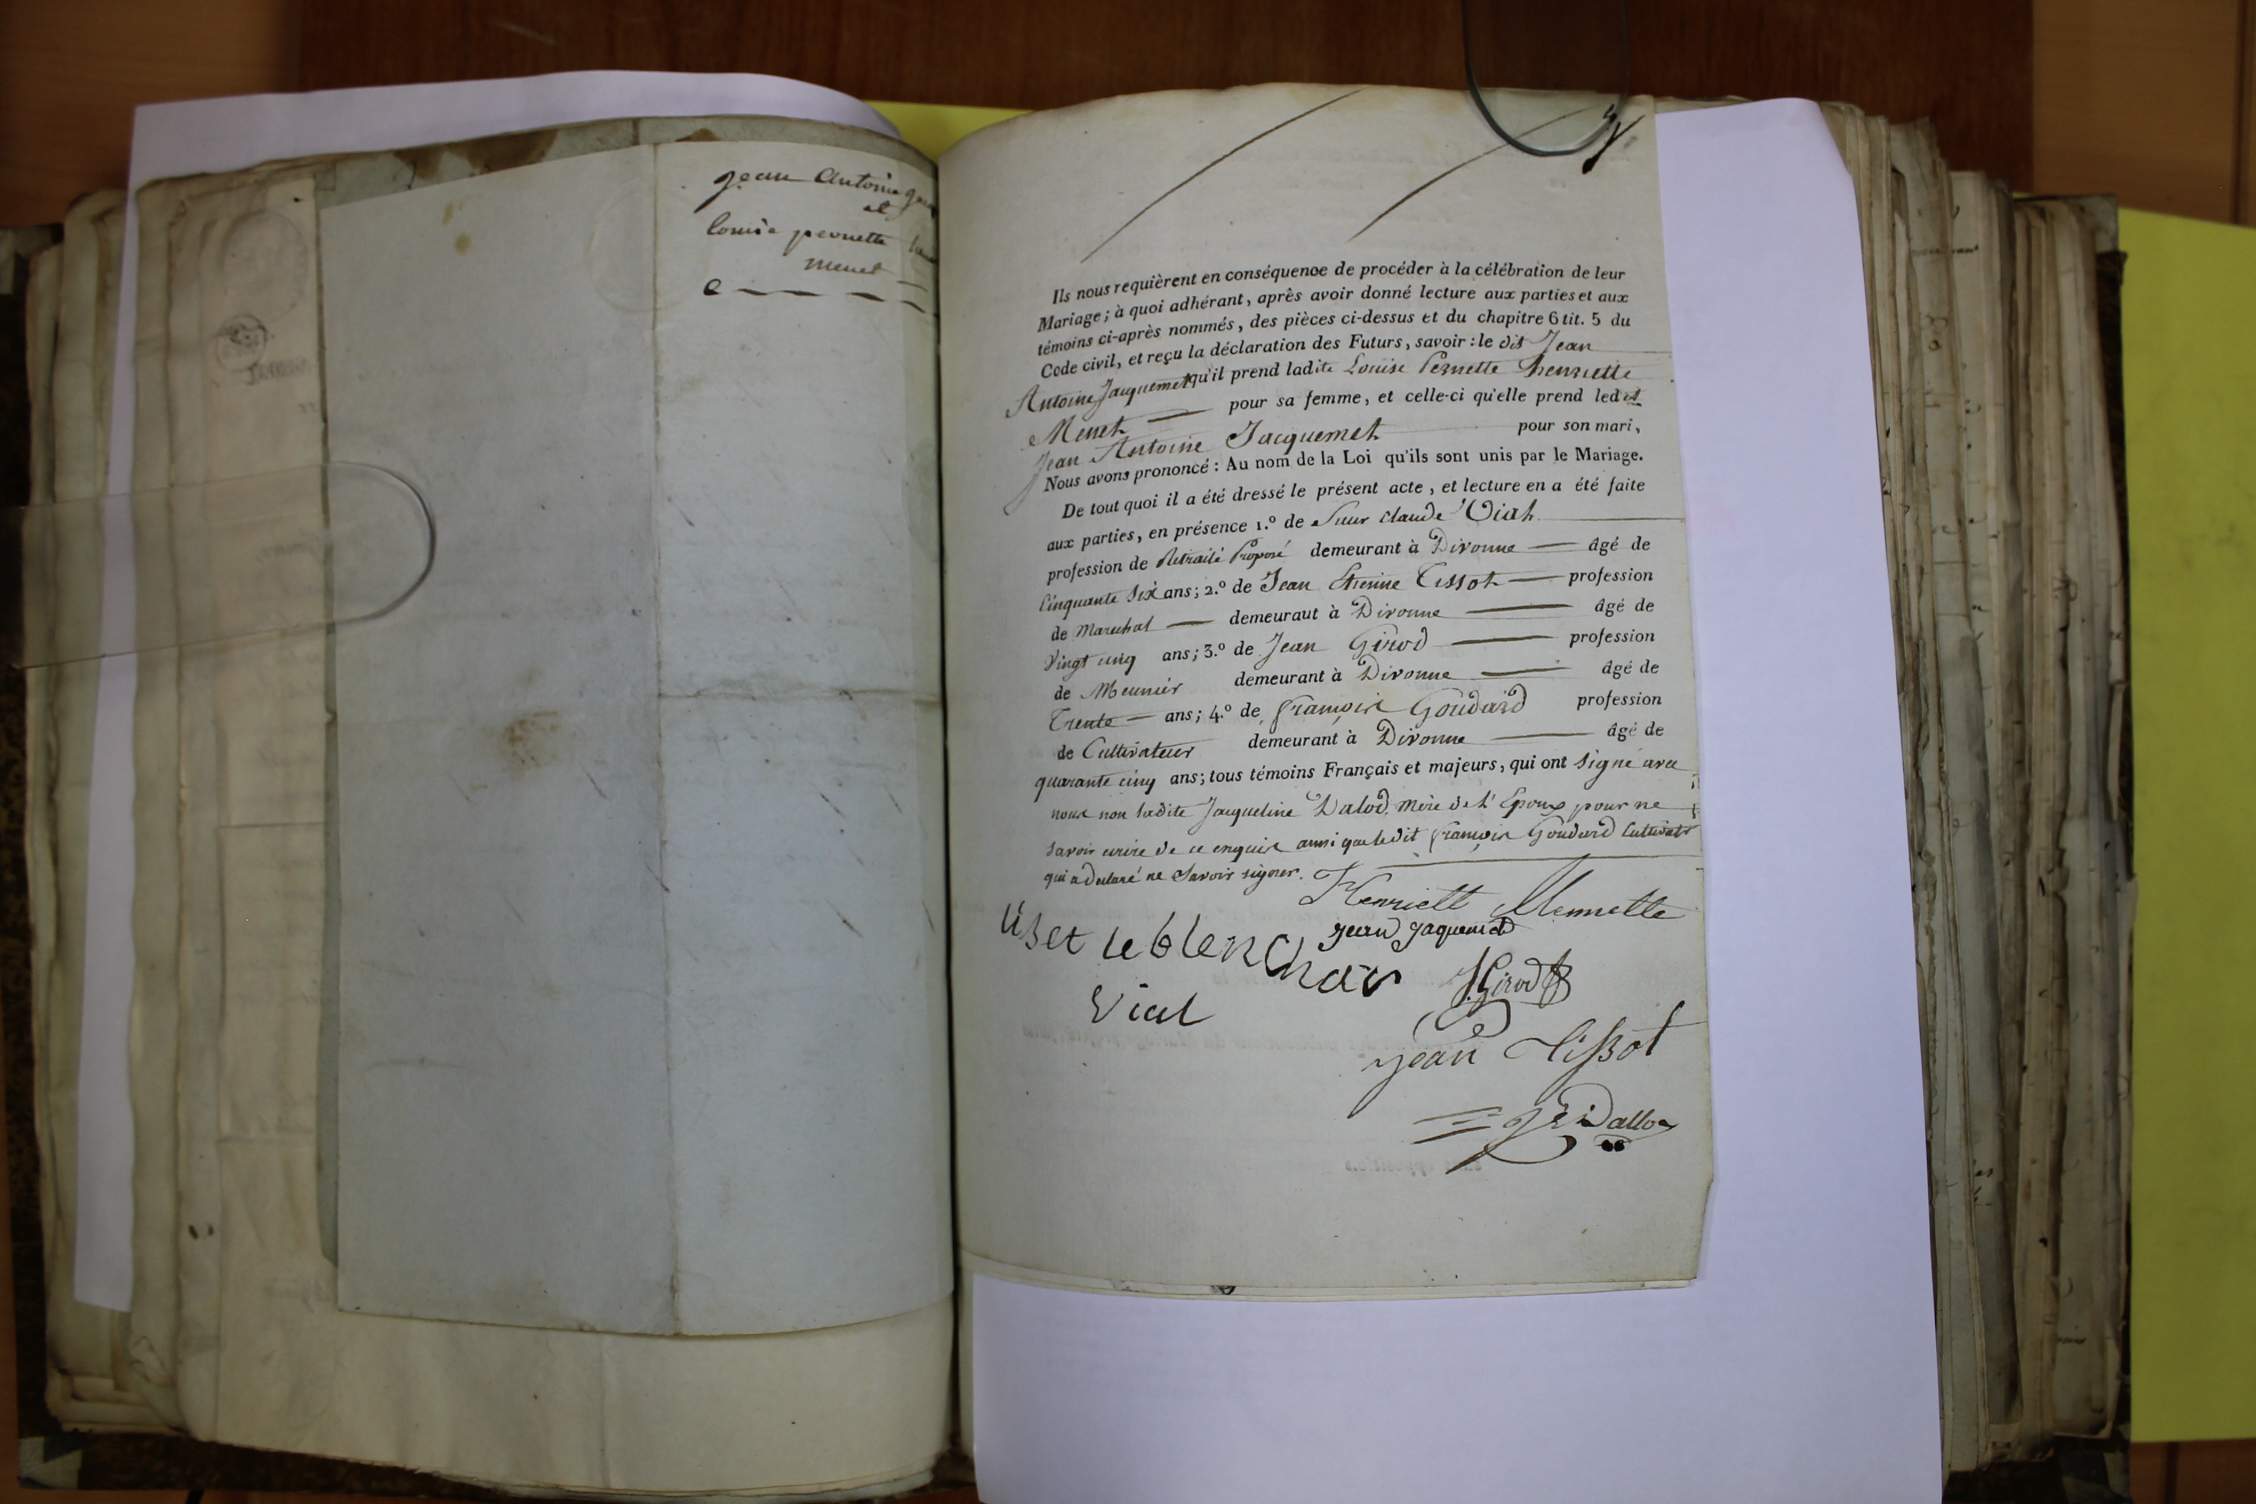 Jean Antoine
et
Louise pernette
menet
Ils nous requièrent en conséquence de procéder à la célébration de leur
Mariage; à quoi adhérant, après avoir donné lecture aux parties et aux
témoins ci-après nommés, des pièces ci-dessus et du chapitre 6 tit. 5 du
Code civil, et reçu la déclaration des Futurs, savoir : le dit Jean
Antoine Jacquemet qu'il prend ladite Louise Pernette henriette
Menet pour sa femme, et celle-ci qu'elle prend ledit
Jean Antoine Jacquemet pour son mari,
Nous avons prononcé : Au nom de la Loi qu'ils sont unis par le Mariage.
De tout quoi il a été dressé le présent acte, et lecture en a été faite
aux parties, en présence 1.º de Sieur claude Vial
profession de Retraité Proposé demeurant à Divonne âgé de
Cinquante Six ans; 2.º de Jean Etienne Tissot profession
de Marechal demeuraut à Divonne âgé de
Vingt cinq ans; 3.º de Jean Girod profession
de Meunier demeurant à Divonne âgé de
Trente ans; 4.º de françois Goudard profession
de Cultivateur demeurant à Divonne âgé de
quarante cinq ans; tous témoins Français et majeurs, qui ont signé avec
nous non ladite Jacqueline Dalod, mère de l'Epoux pour ne
savoir ecrire de ce enquise ainsi que ledit françois Goudard Cultivatr
qui a declaré ne Savoir signer.
Henriett Mennette
jean jaquemet
Liset leblenc
J. Girod
Vial
jean tissot
Dallo